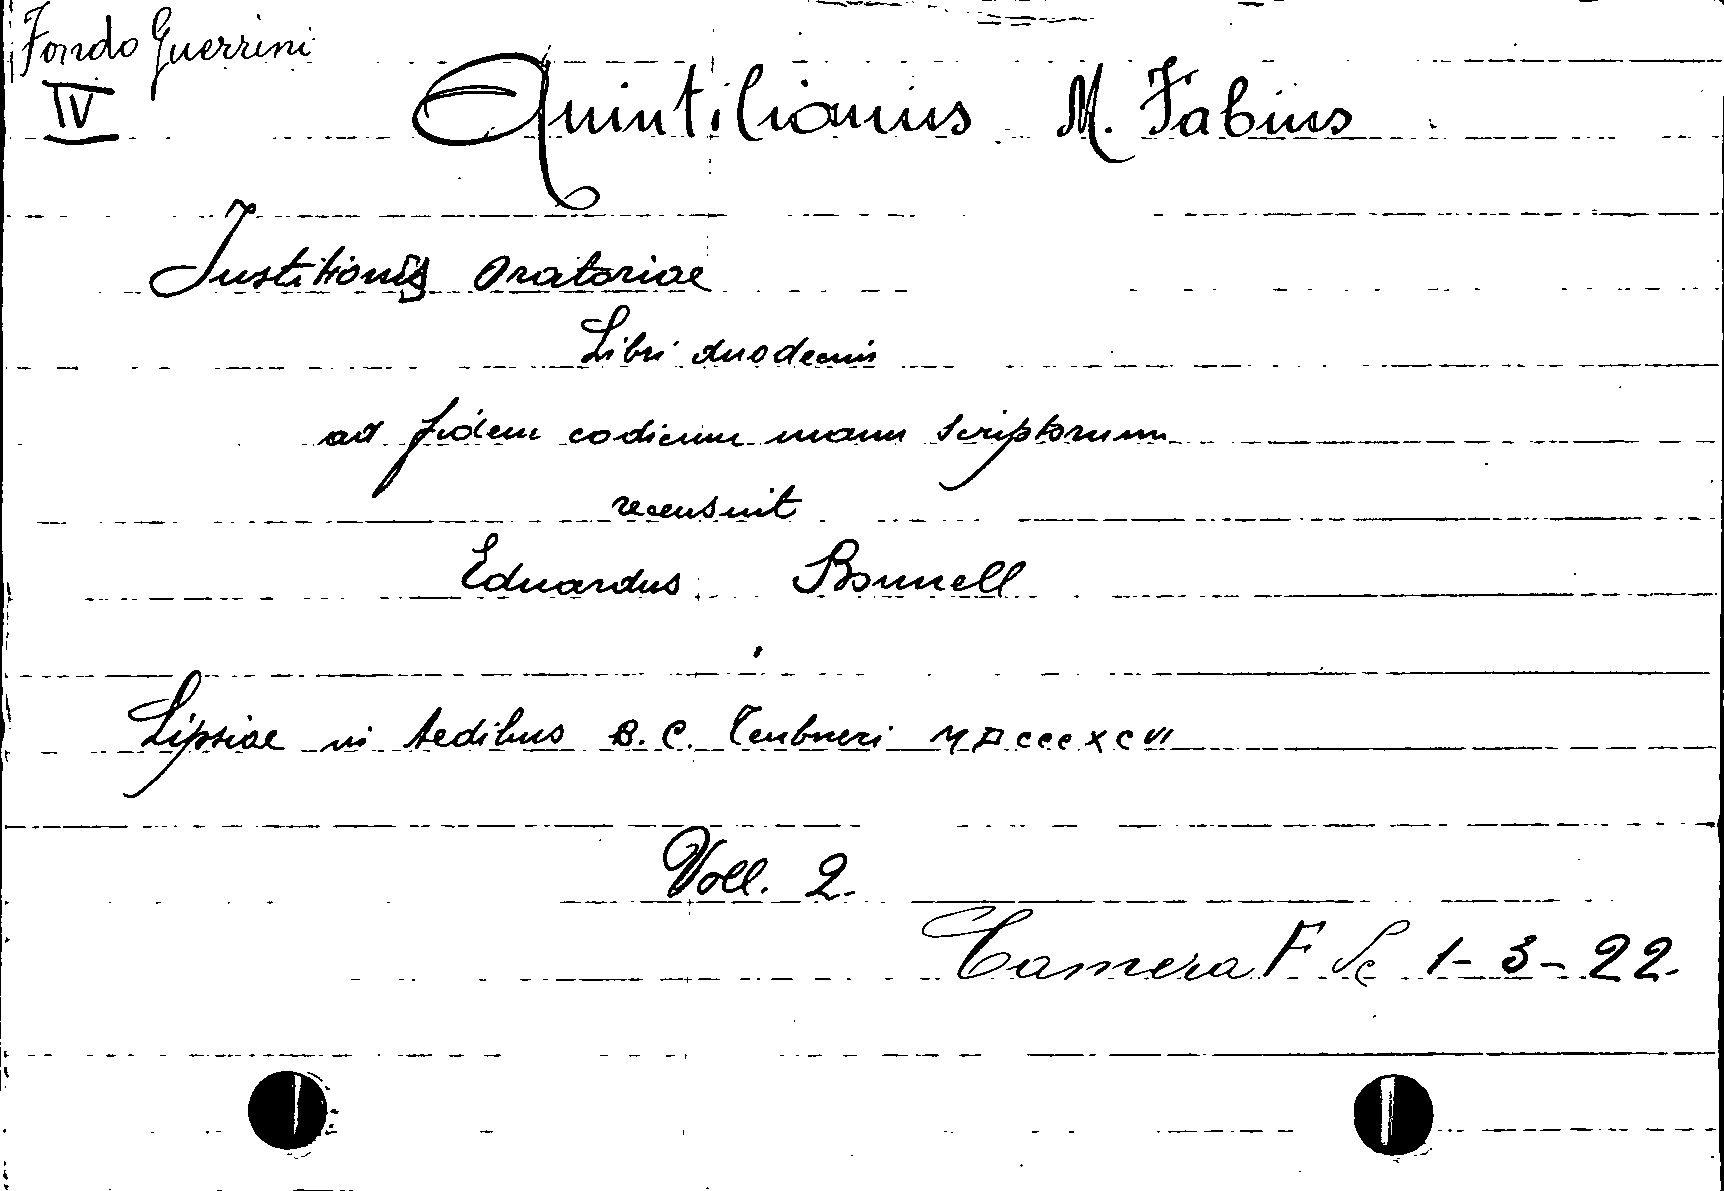 Fondo Guerrini
IV
Quintilianus M. Fabius
Institionis Oratoriae
Libri duodecim
ad fidem codicum manu scriptorum
recensuit
Eduardus Bonnell
Lipsiae in Aedibus B. C. Teubneri MDCCCXCVI
Voll. 2.
Camera F Sc 1-3-22.